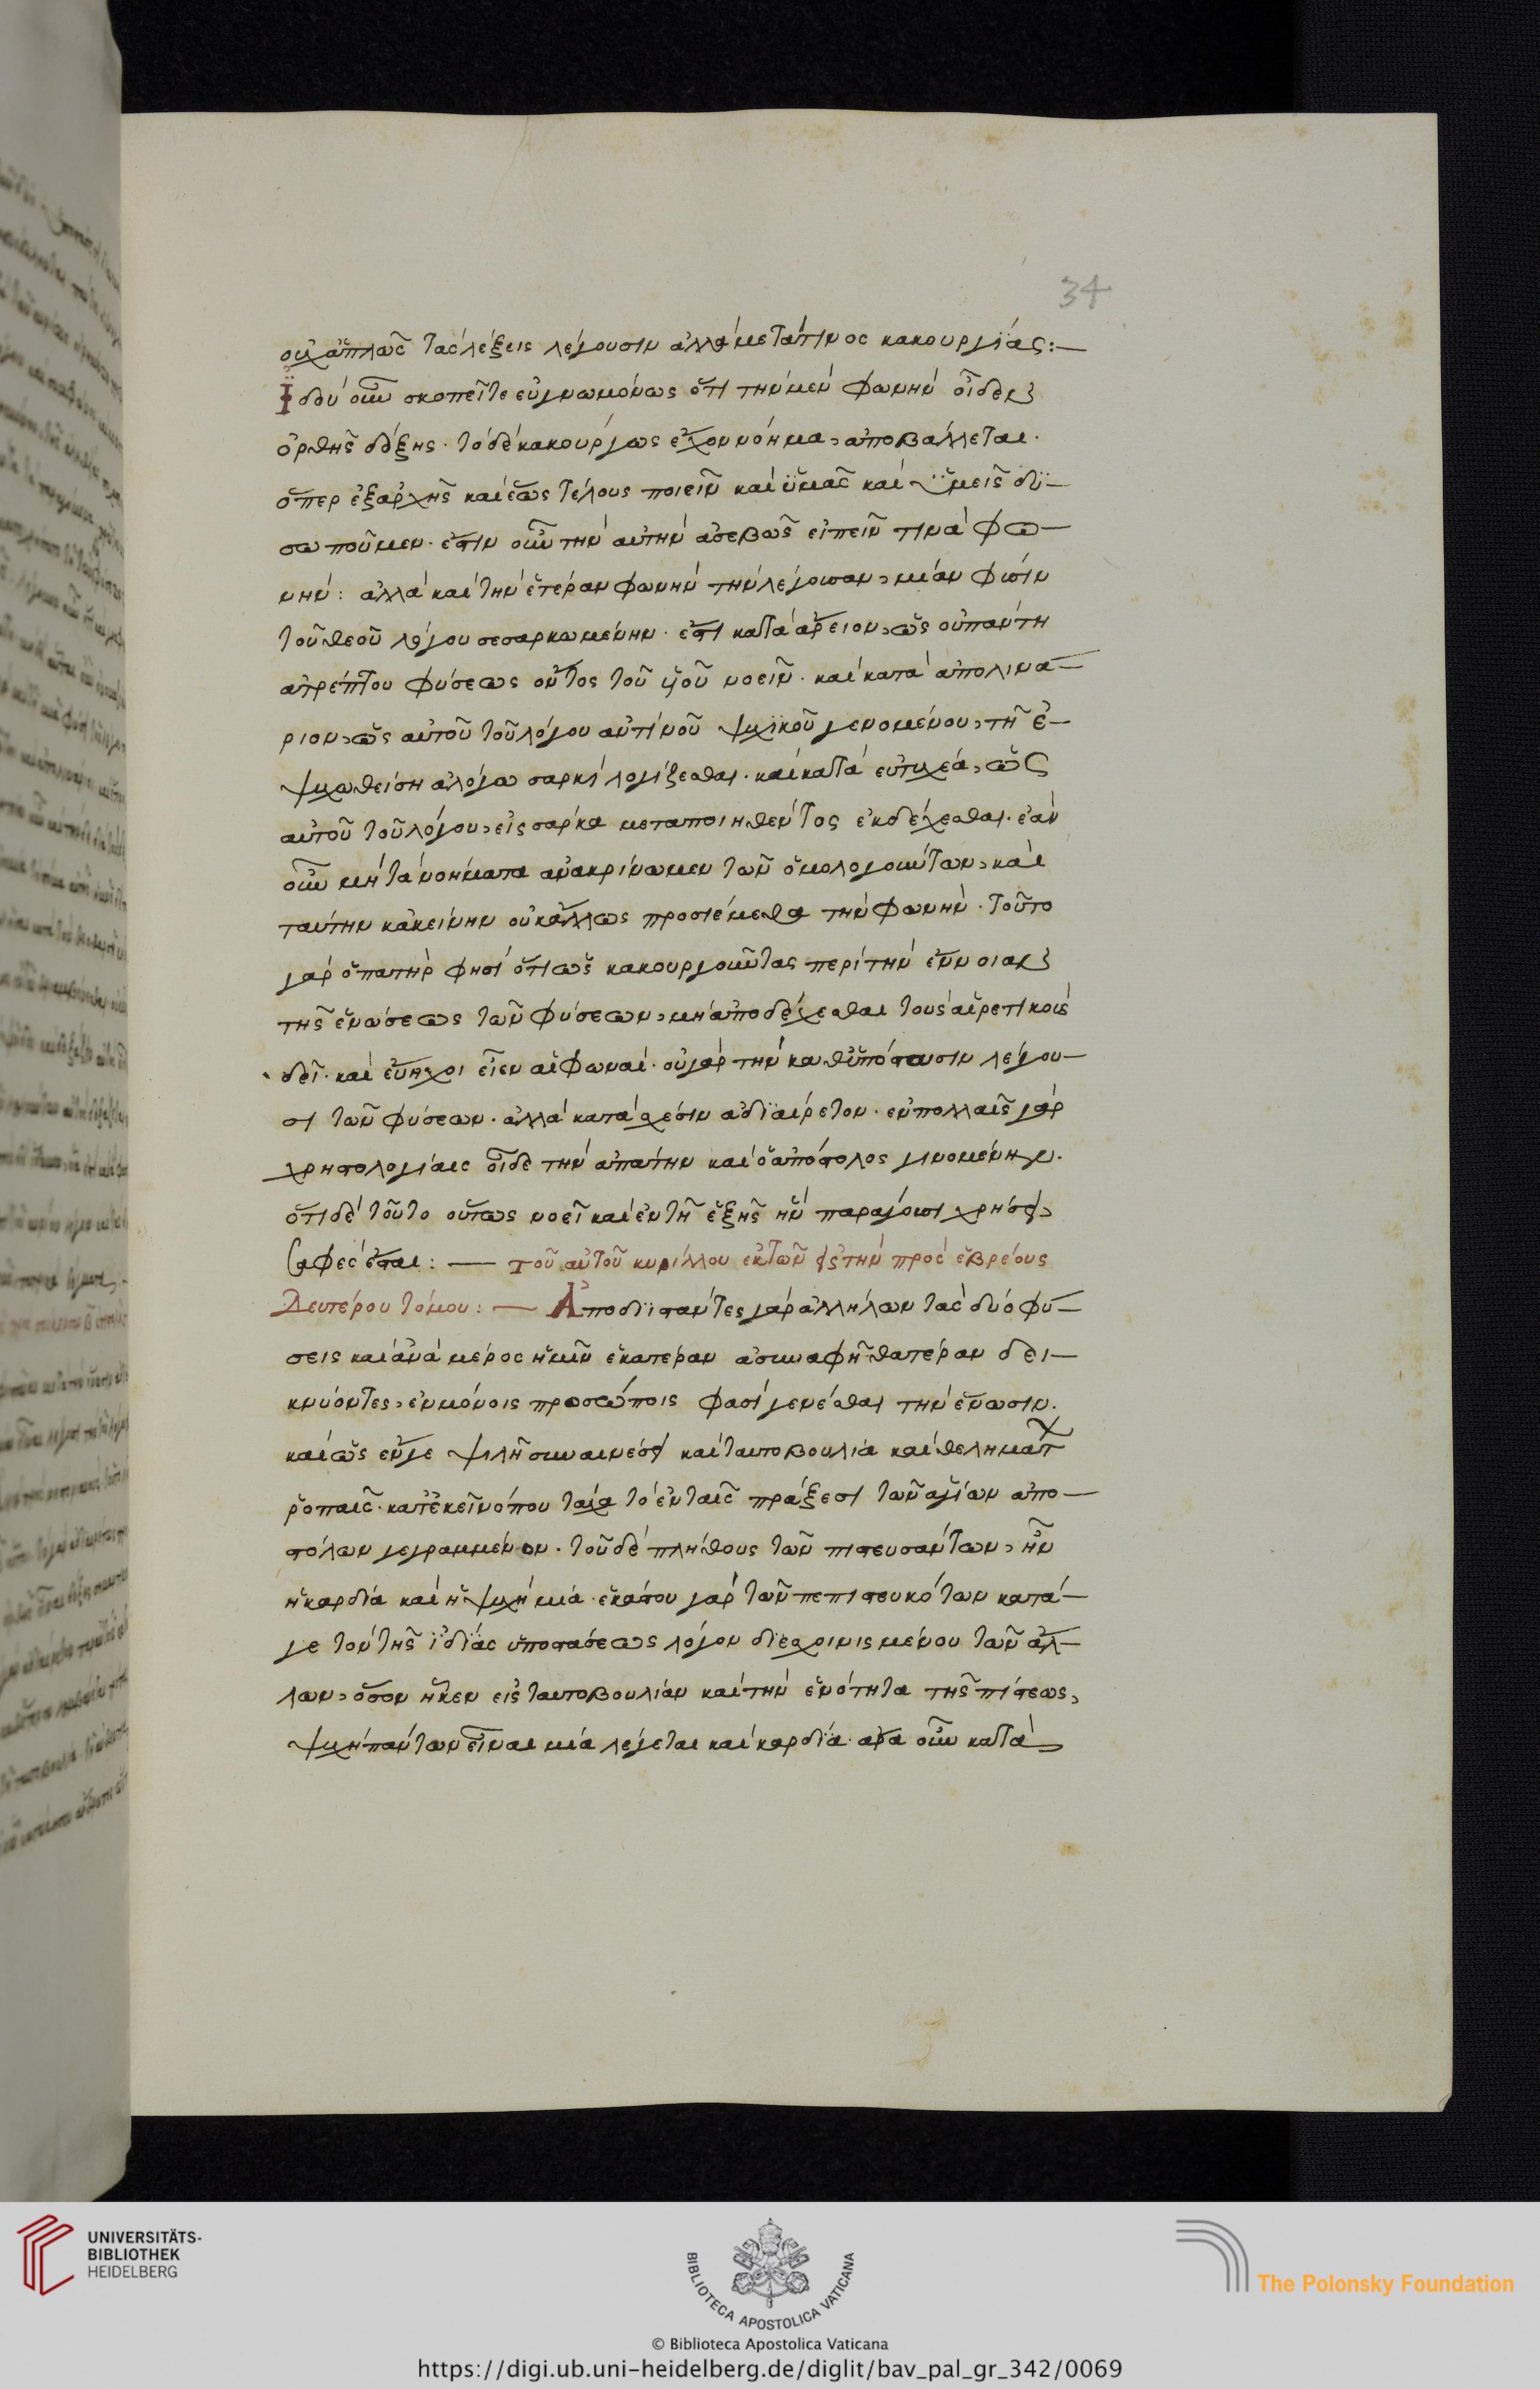 34
οὐχ ἁπλῶς τὰς λέξεις λέγουσιν ἀλλὰ μετά τινος κακουργΐας:—
Ἰδοὺ οὖν σκοπεῖτε εὐγνωμόνως ὅτι τὴν μὲν φωνὴν οἶδεν
ὀρθῆς δόξης· τὸ δὲ κακούργως ἔχον νόημα, ἀποβάλλεται·
ὅπερ ἐξαρχῆς καὶ ἕως τέλους ποιεῖν καὶ ὑμᾶς καὶ ἡμεῖς δυ—
σωποῦμεν· ἔστιν οὖν τὴν αὐτὴν ἀσεβῶς εἰπεῖν τινὰ φω—
νήν: ἀλλὰ καὶ τὴν ἑτέραν φωνὴν τὴν λέγουσαν, μίαν φύσιν
τοῦ θεοῦ λόγου σεσαρκωμένην· ἔστι κατὰ ἄρειον, ὡς οὐ πάντη
ἀτρέπτου φύσεως ὄντος τοῦ υἱοῦ νοεῖν· καὶ κατὰ ἀπολινά—
ριον, ὡς αὐτοῦ τοῦ λόγου ἀντὶ νοῦ ψυχϊκοῦ γενομένου, τῇ ἐ—
ψυχωθείσῃ ἀλόγω σαρκὶ λογίζεσθαι· καὶ κατὰ εὐτυχέα, ὡς
αὐτοῦ τοῦ λόγου, εἰς σάρκα μεταποιηθέντος ἐκδέχεσθαι· ἐὰν
οὖν μὴ τὰ νοήματα ἀνακρίνωμεν τῶν ὁμολογούντων, καὶ
ταύτην κἀκείνην οὐκ ἄλλως προσιέμεθα τὴν φωνήν· τοῦτο
γὰρ ὁ πατὴρ φησὶ ὅτι ὡς κακουργοῦντας περὶ τὴν ἔννοιαν
τῆς ἑνώσεως τῶν φύσεων, μὴ ἀποδέχεσθαι τοὺς αἱρετικοὺς
δεῖ· καὶ εὔηχοι εἶεν αἱ φωναί· οὐ γὰρ τὴν καθ' ὑπόστασιν λέγου—
σι τῶν φύσεων· ἀλλὰ κατὰ σχέσιν ἀδϊαίρετον· ἐν πολλαῖς γὰρ
χρηστολογίαις οἶδε τὴν ἀπάτην καὶ ὁ ἀπόστολος γινομένην·
ὅτι δὲ τοῦτο οὕτως νοεῖ καὶ ἐν τῇ ἑξῆς ἣν παράγουσι χρήσει,
σαφὲς ἔσται: — τοῦ αὐτοῦ κυρίλλου ἐκ τῶν εἰς τὴν πρὸς ἑβρέους
Δευτέρου τόμου: — Ἀποδϊιστάντες γὰρ ἀλλήλων τὰς δύο φύ—
σεις καὶ ἀνὰ μέρος ἡμῖν ἑκατέραν ἀσυναφῆ θατέραν δει—
κνύοντες, ἐν μόνοις προσώποις φασὶ γενέσθαι τὴν ἕνωσιν·
καὶ ὡς ἔν γε ψιλῇ συναινέσει καὶ ταυτοβουλία καὶ θελημάτων
ῥοπαῖς· κατ' ἐκεῖνό που τάχα τὸ ἐν ταῖς πράξεσι τῶν ἁγίων ἀπο—
στόλων γεγραμμένον· τοῦ δὲ πλήθους τῶν πιστευσάντων, ἦν
ἡ καρδία καὶ ἡ ψυχὴ μία· ἑκάστου γὰρ τῶν πεπιστευκότων κατά—
γε τὸν τῆς ϊδίας ὑποστάσεως λόγον δϊεσχοινισμένου τῶν ἄλ—
λων, ὅσον ἧκεν εἰς ταυτοβουλίαν καὶ τὴν ἑνότητα τῆς πίστεως,
ψυχὴ πάντων εἶναι μία λέγεται καὶ καρδΐα· ἆρα οὖν κατὰ
UNIVERSITÄTS-
BIBLIOTHEK
HEIDELBERG
BIBLIOTECA APOSTOLICA VATICANA
The Polonsky Foundation
© Biblioteca Apostolica Vaticana
https://digi.ub.uni-heidelberg.de/diglit/bav_pal_gr_342/0069